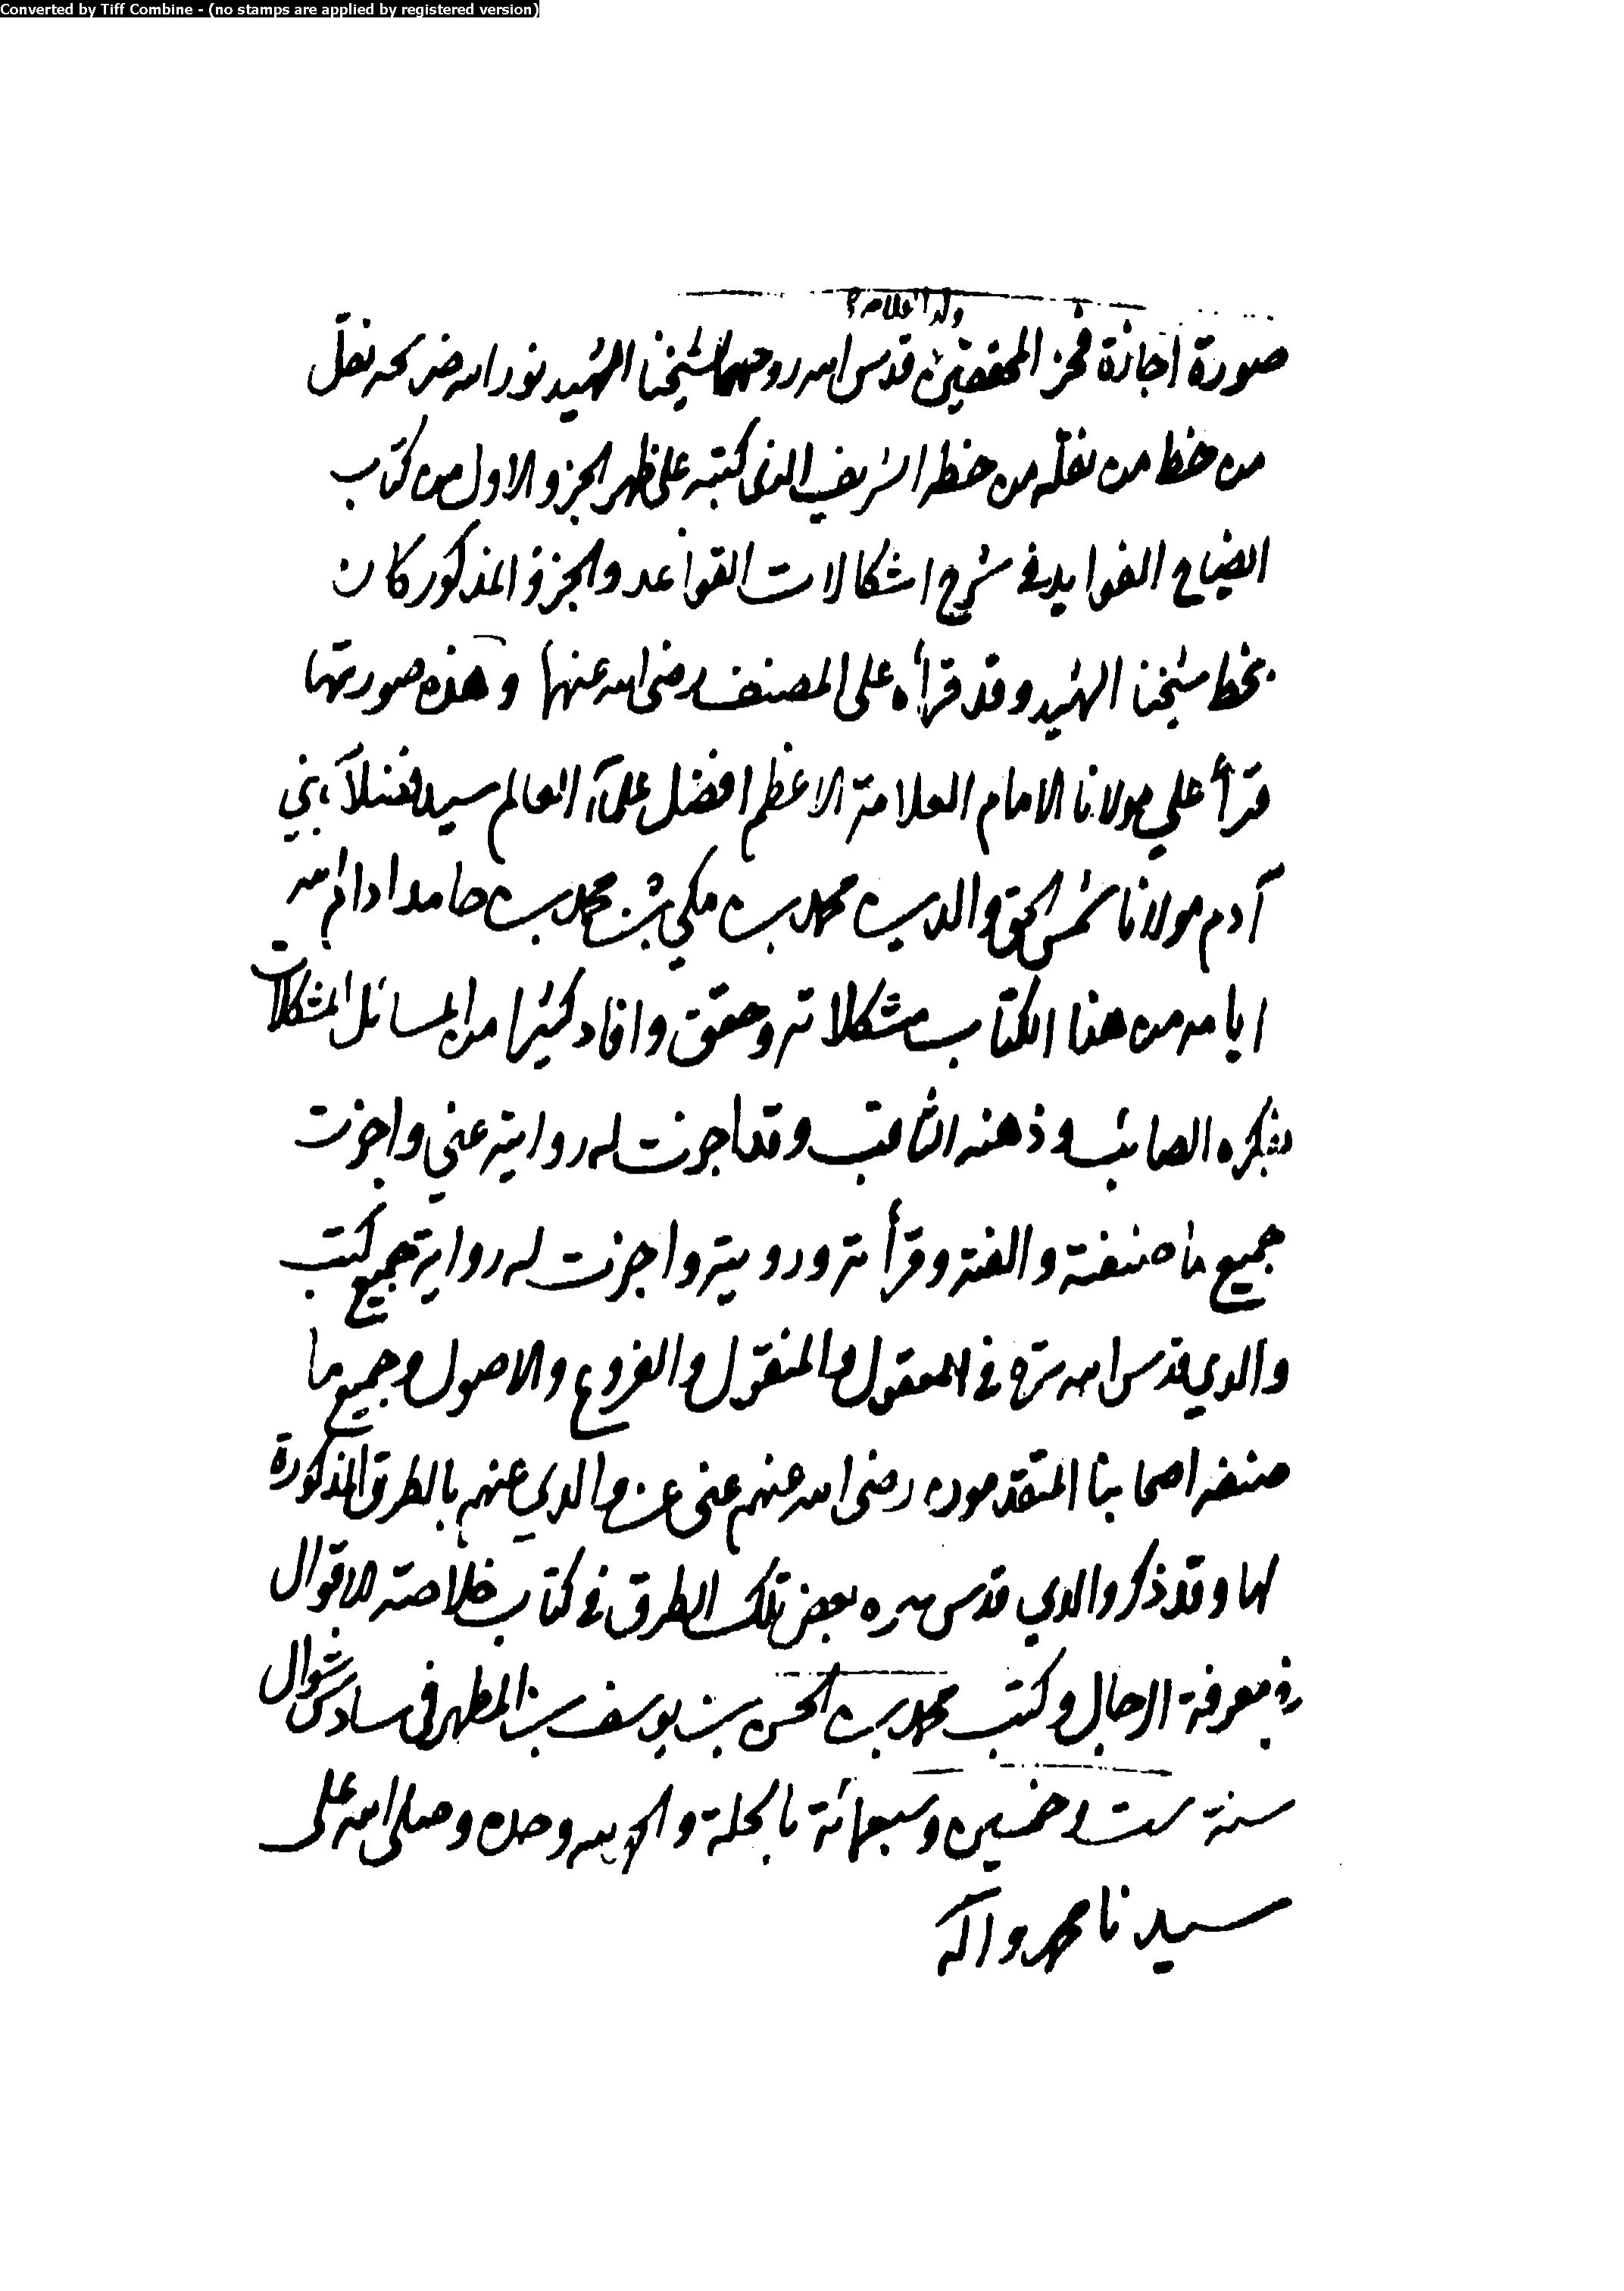 Converted by Tiff Combine - (no stamps are applied by registered version)
ولد العلامة
صورة اجازة فخر المحققين قدس الله روحهما لشيخنا الشهيد نور الله ضريحه نقل
من خط من نقله من خطه الشريف الذي كتبه على ظهر الجزو الاول من كتاب
ايضاح الفوايد في شرح اشكالات القواعد والجزؤ المذكور كان
بخط شيخنا الشهيد وقد قرأه على المصنف رضي الله عنهما وهذه صورتها
قرأ علي مولانا الامام العلامة الاعظم افضل علماء العالم سيد فضلاء بني
آدم مولانا شمس الحق والدين محمد بن مكي بن محمد بن حامد ادام الله
ايامه من هذا الكتاب مشكلاته وحقق وافاد كثيرا من المسائل المشكلات
بفكره الصائب وذهنه الثاقب وقد اجزت له روايته عني واجزت
جميع ما صنفته والفته وقرأته ورويته واجزت له رواية جميع كتب
والدي قدس الله سره في المعقول والمنقول والفروع والاصول وجميع ما
صنفه اصحابنا المتقدمون رضي الله عنهم عني عن والدي عنهم بالطرق المذكورة
لها وقد ذكر والدي قدس سره بعض تلك الطرق في كتاب خلاصة الاقوال
في معرفة الرجال وكتب محمد بن الحسن بن يوسف بن المطهر في سادس شوال
سنة ست وخمسين وسبعمائة بالحلة والحمد لله وحده وصلى الله على
سيدنا محمد وآله